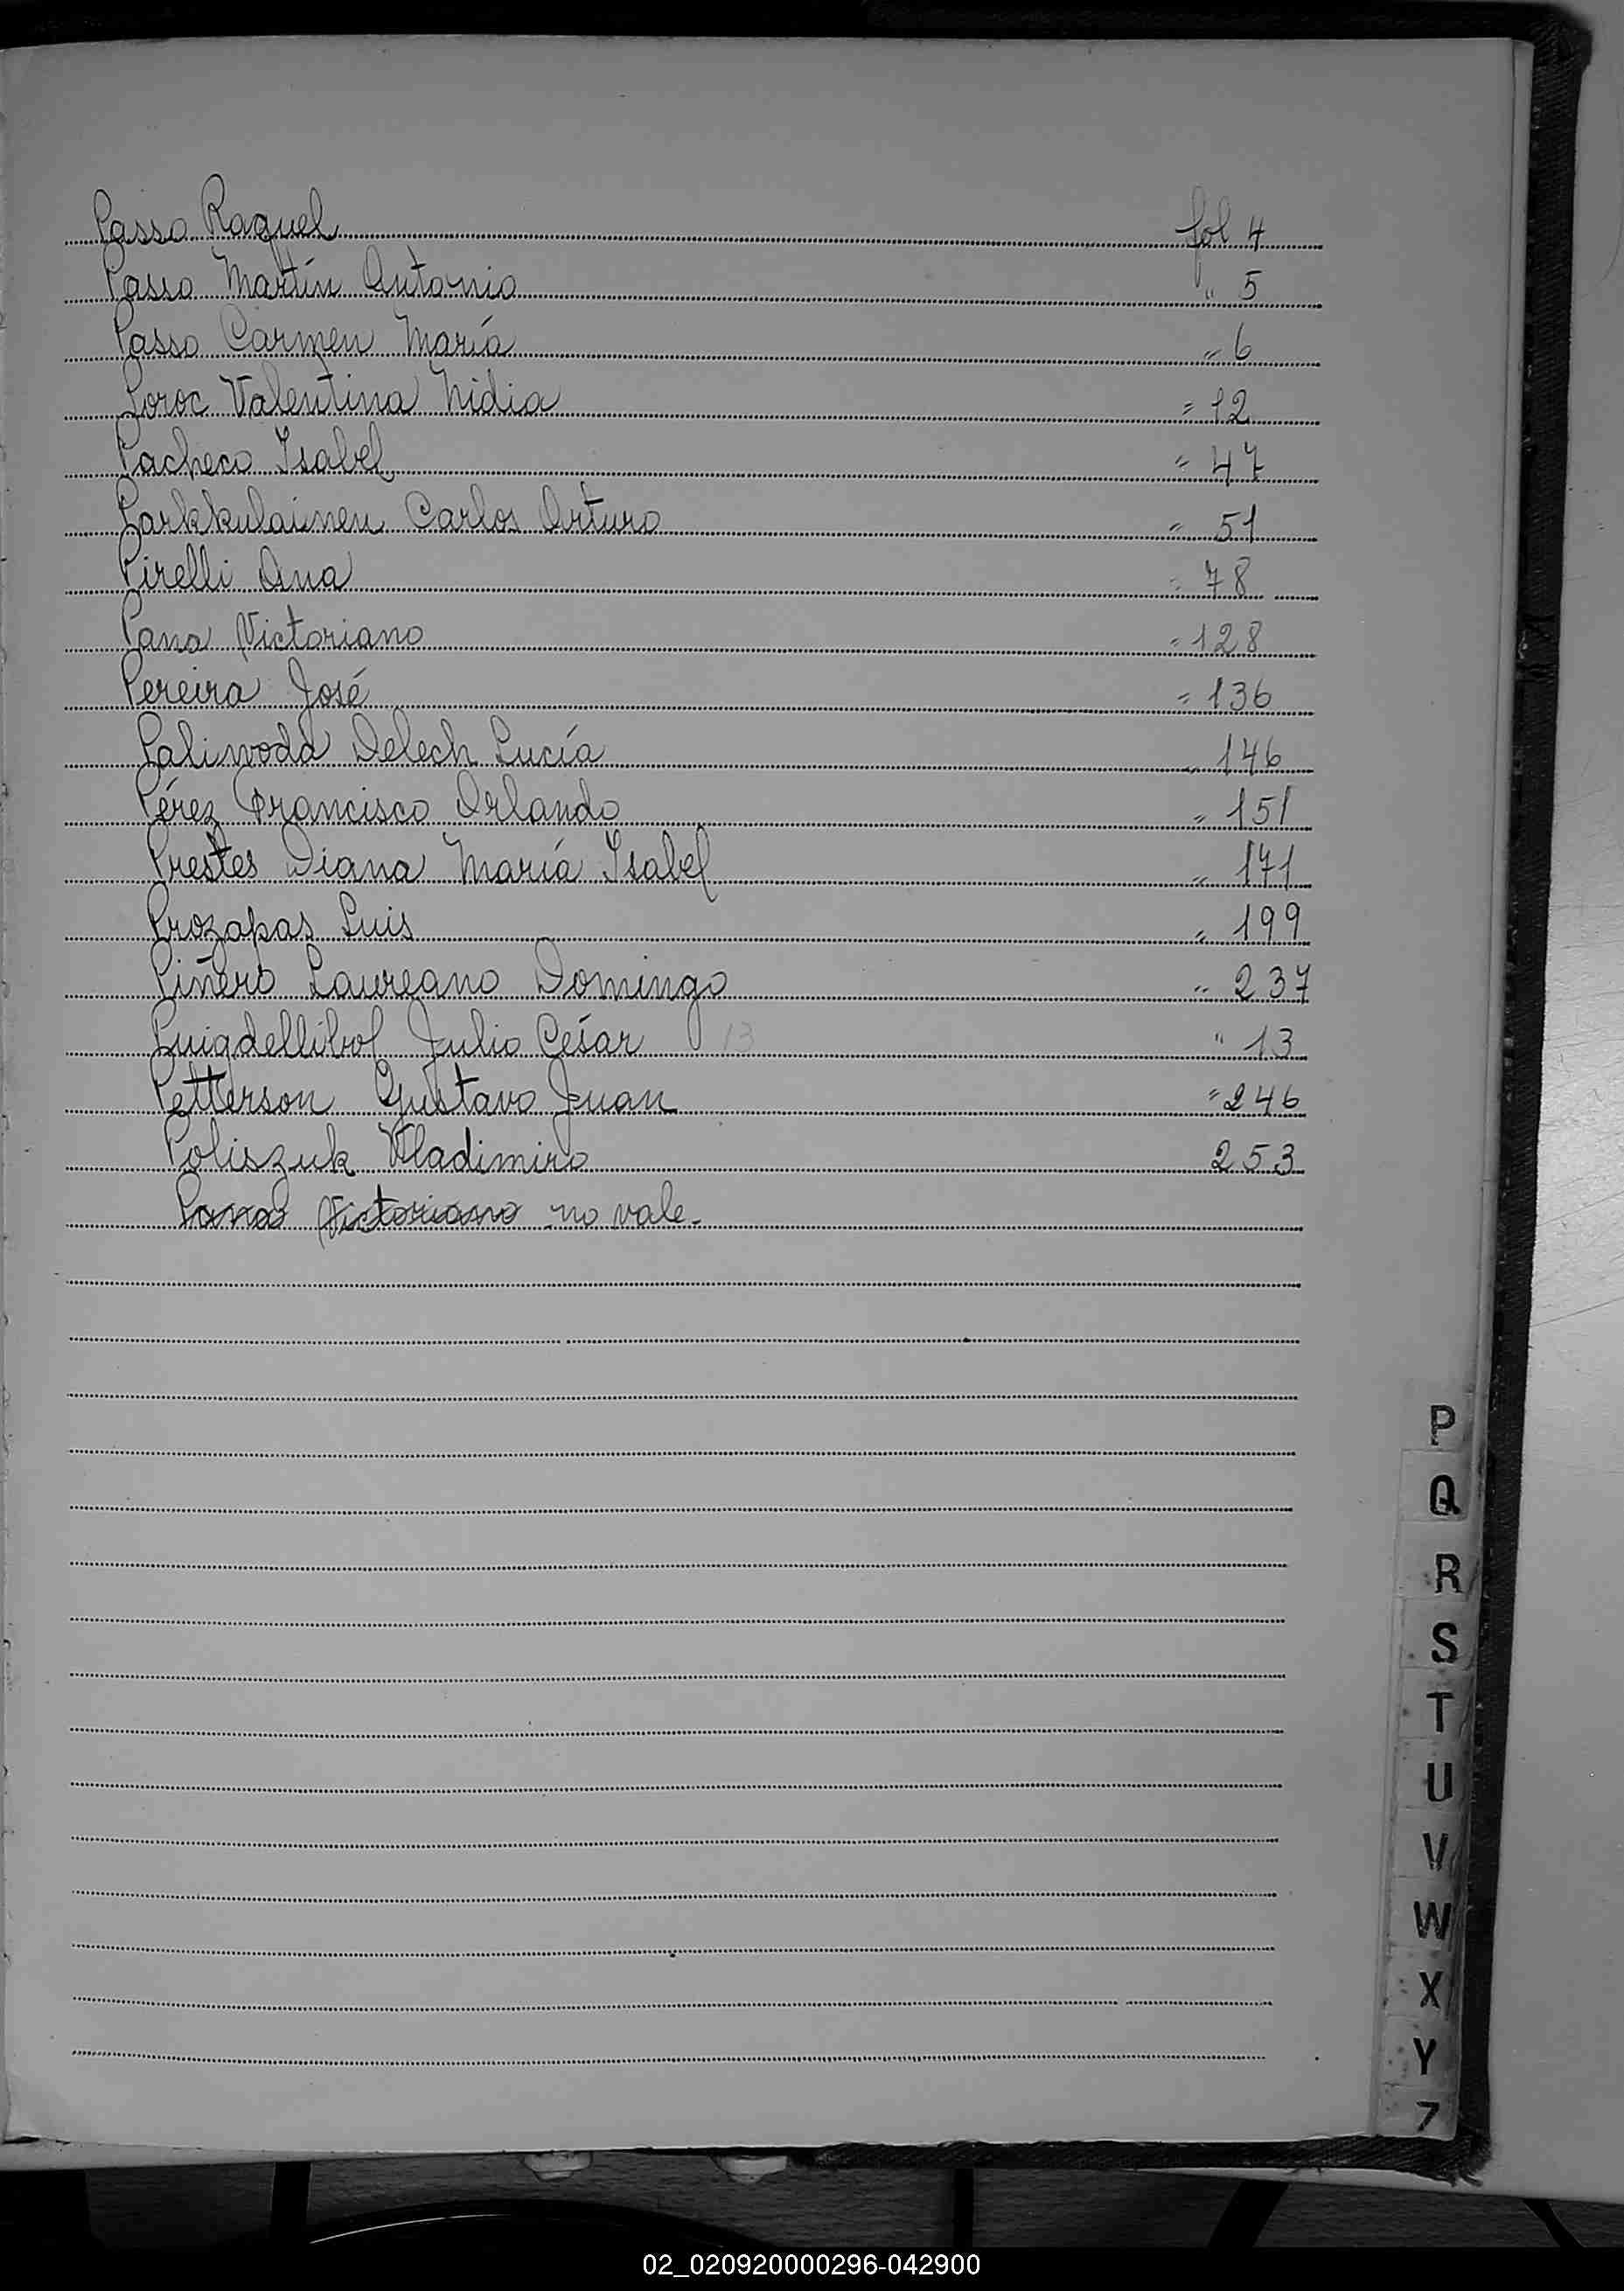 Passo Raquel fol 4
Passo Martín Antonio " 5
Passo Carmen María " 6
Poroc Valentina Nidia " 12
Pacheco Isabel " 47
Parkkulainen Carlos Arturo " 51
Pirelli Ana " 78
Pana Victoriano " 128
Pereira José " 136
Paliwoda Delech Lucía " 146
Pérez Francisco Orlando " 151
Prestes Diana María Isabel " 171
Prozapas Luis " 199
Piñero Laureano Domingo " 237
Puigdellibol Julio César 13 " 13
Petterson Gustavo Juan " 246
Poliszuk Wladimiro 253
Pana Victoriano no vale.
P
Q
R
S
T
U
V
W
X
Y
Z
02_020920000296-042900